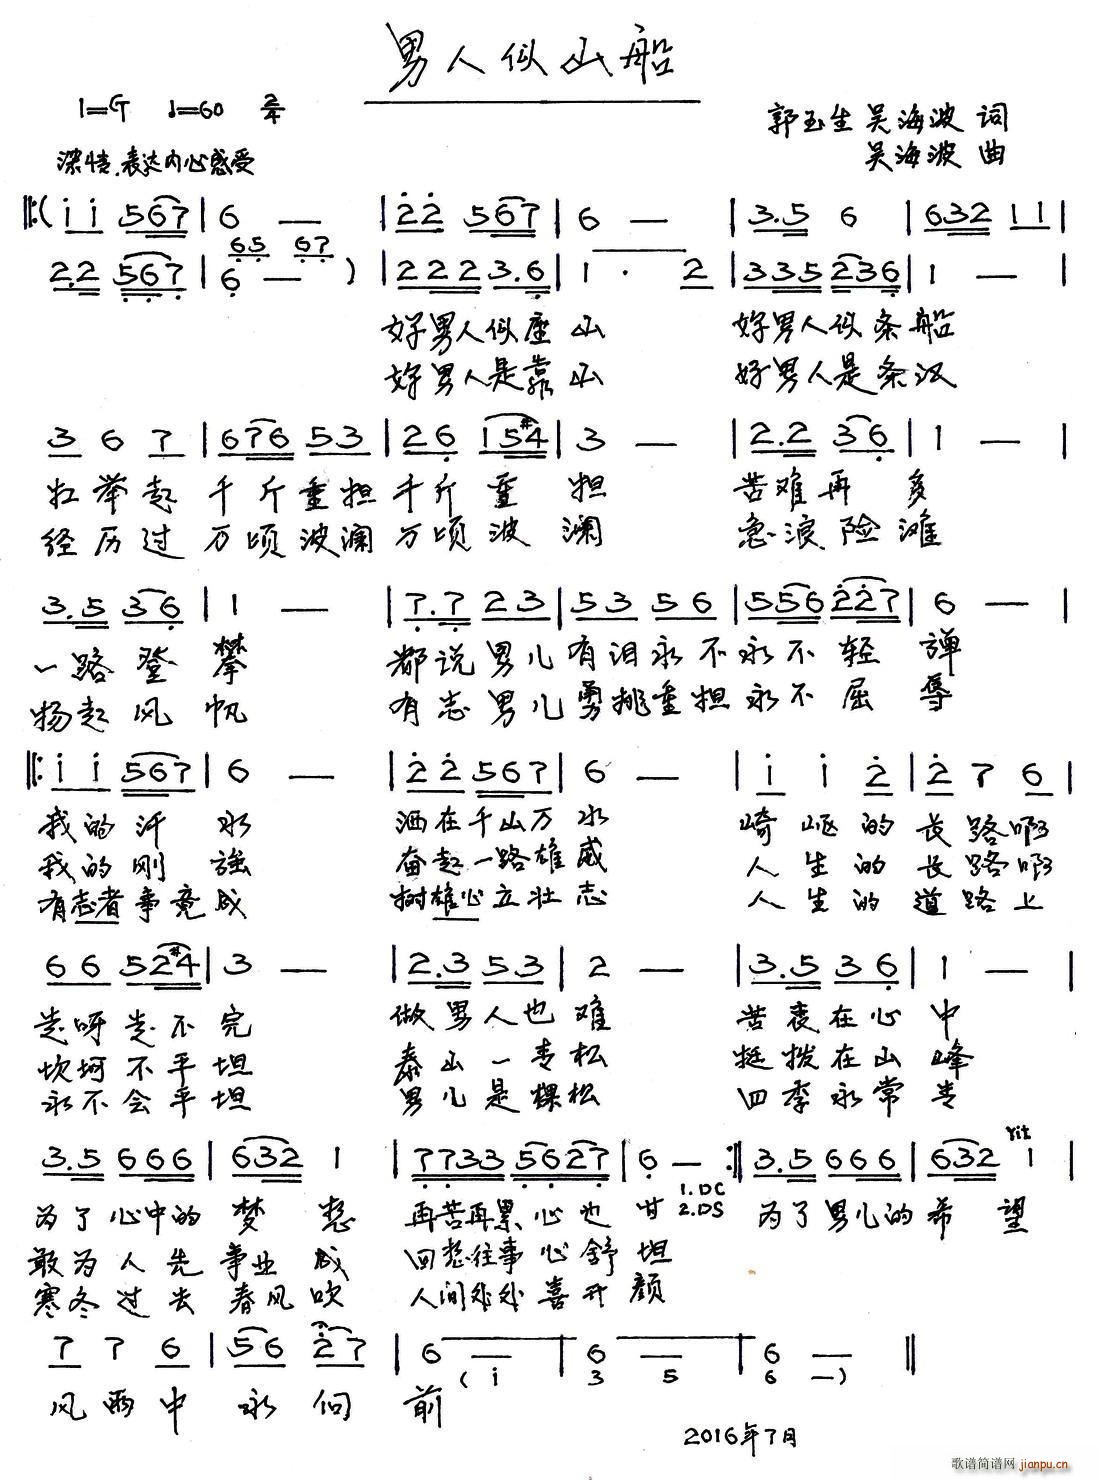 男人似山船
1=G ♩=60 2/4
郭玉生 吴海波 词
深情.表达内心感受
吴海波 曲
‖:( i i 5 6 7 | 6 — | 2 2 5 6 7 | 6 — | 3.5 6 | 6 3 2 1 1 |
6 5 6 7
2 2 5 6 7 | 6 — ) | 2 2 2 3.6 | 1 · 2 | 3 3 5 2 3 6 | 1 — |
好男人似座山 好男人似条船
好男人是靠山 好男人是条汉
3 6 7 | 6 7 6 5 3 | 2 6 1 5 #4 | 3 — | 2.2 3 6 | 1 — |
扛举起千斤重担千斤重担 苦难再多
经历过万顷波澜万顷波澜 急浪险滩
3.5 3 6 | 1 — | 7.7 2 3 | 5 3 5 6 | 5 5 6 2 2 7 | 6 — |
一路登攀 都说男儿有泪永不永不轻弹
扬起风帆 有志男儿勇挑重担永不屈辱
‖: i i 5 6 7 | 6 — | 2 2 5 6 7 | 6 — | i i 2 | 2 7 6 |
我的汗水 洒在千山万水 崎岖的长路啊
我的刚强 奋起一路雄威 人生的长路啊
有志者事竟成 树雄心立壮志 人生的道路上
6 6 5 2 #4 | 3 — | 2.3 5 3 | 2 — | 3.5 3 6 | 1 — |
走呀走不完 做男人也难 苦衷在心中
坎坷不平坦 泰山一青松 挺拨在山峰
永不会平坦 男儿是棵松 四季永常青
3.5 6 6 6 | 6 3 2 1 | 7 7 3 3 5 6 2 7 | 6 — :‖ 3.5 6 6 6 | 6 3 2 i |
rit
1.DC
2.DS
为了心中的梦想 再苦再累心也甘 为了男儿的希望
敢为人先事业成 回想往事心舒坦
寒冬过去春风吹 人间处处喜开颜
7 7 6 | 5 6 2 7 | 6 — | 6 — | 6 — ‖
( i 3 5 6 — )
风雨中永向前
2016年7月
歌谱简谱网 jianpu.cn